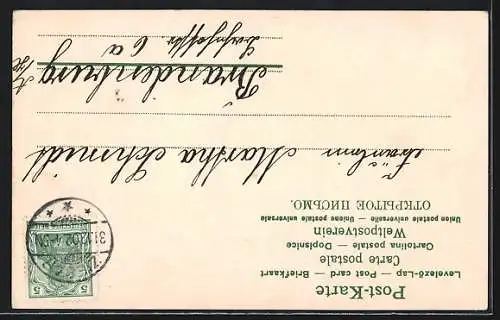 Post-Karte
Levelező-Lap — Post card — Briefkaart
Carte postale
Cartolina postale — Dopisnice
Weltpostverein
Union postale universelle — Unione postale universale
ОТКРЫТОЕ ПИСЬМО.
5 5
31.12.02
Fräulein Martha Schmidt
Brandenburg
6a